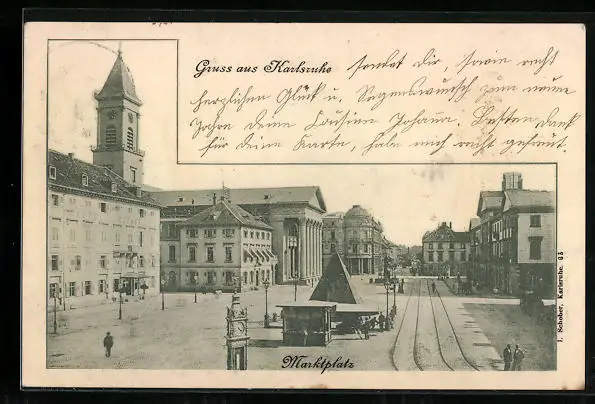 Gruss aus Karlsruhe
sendet Dir, sowie recht
herzlichen Glück u. Segenswunsch zum neuen
Jahre Deine Cousine Johanna. Besten Dank
für Deine Karte, habe mich recht gefreut.
Marktplatz
I. Schober, Karlsruhe.